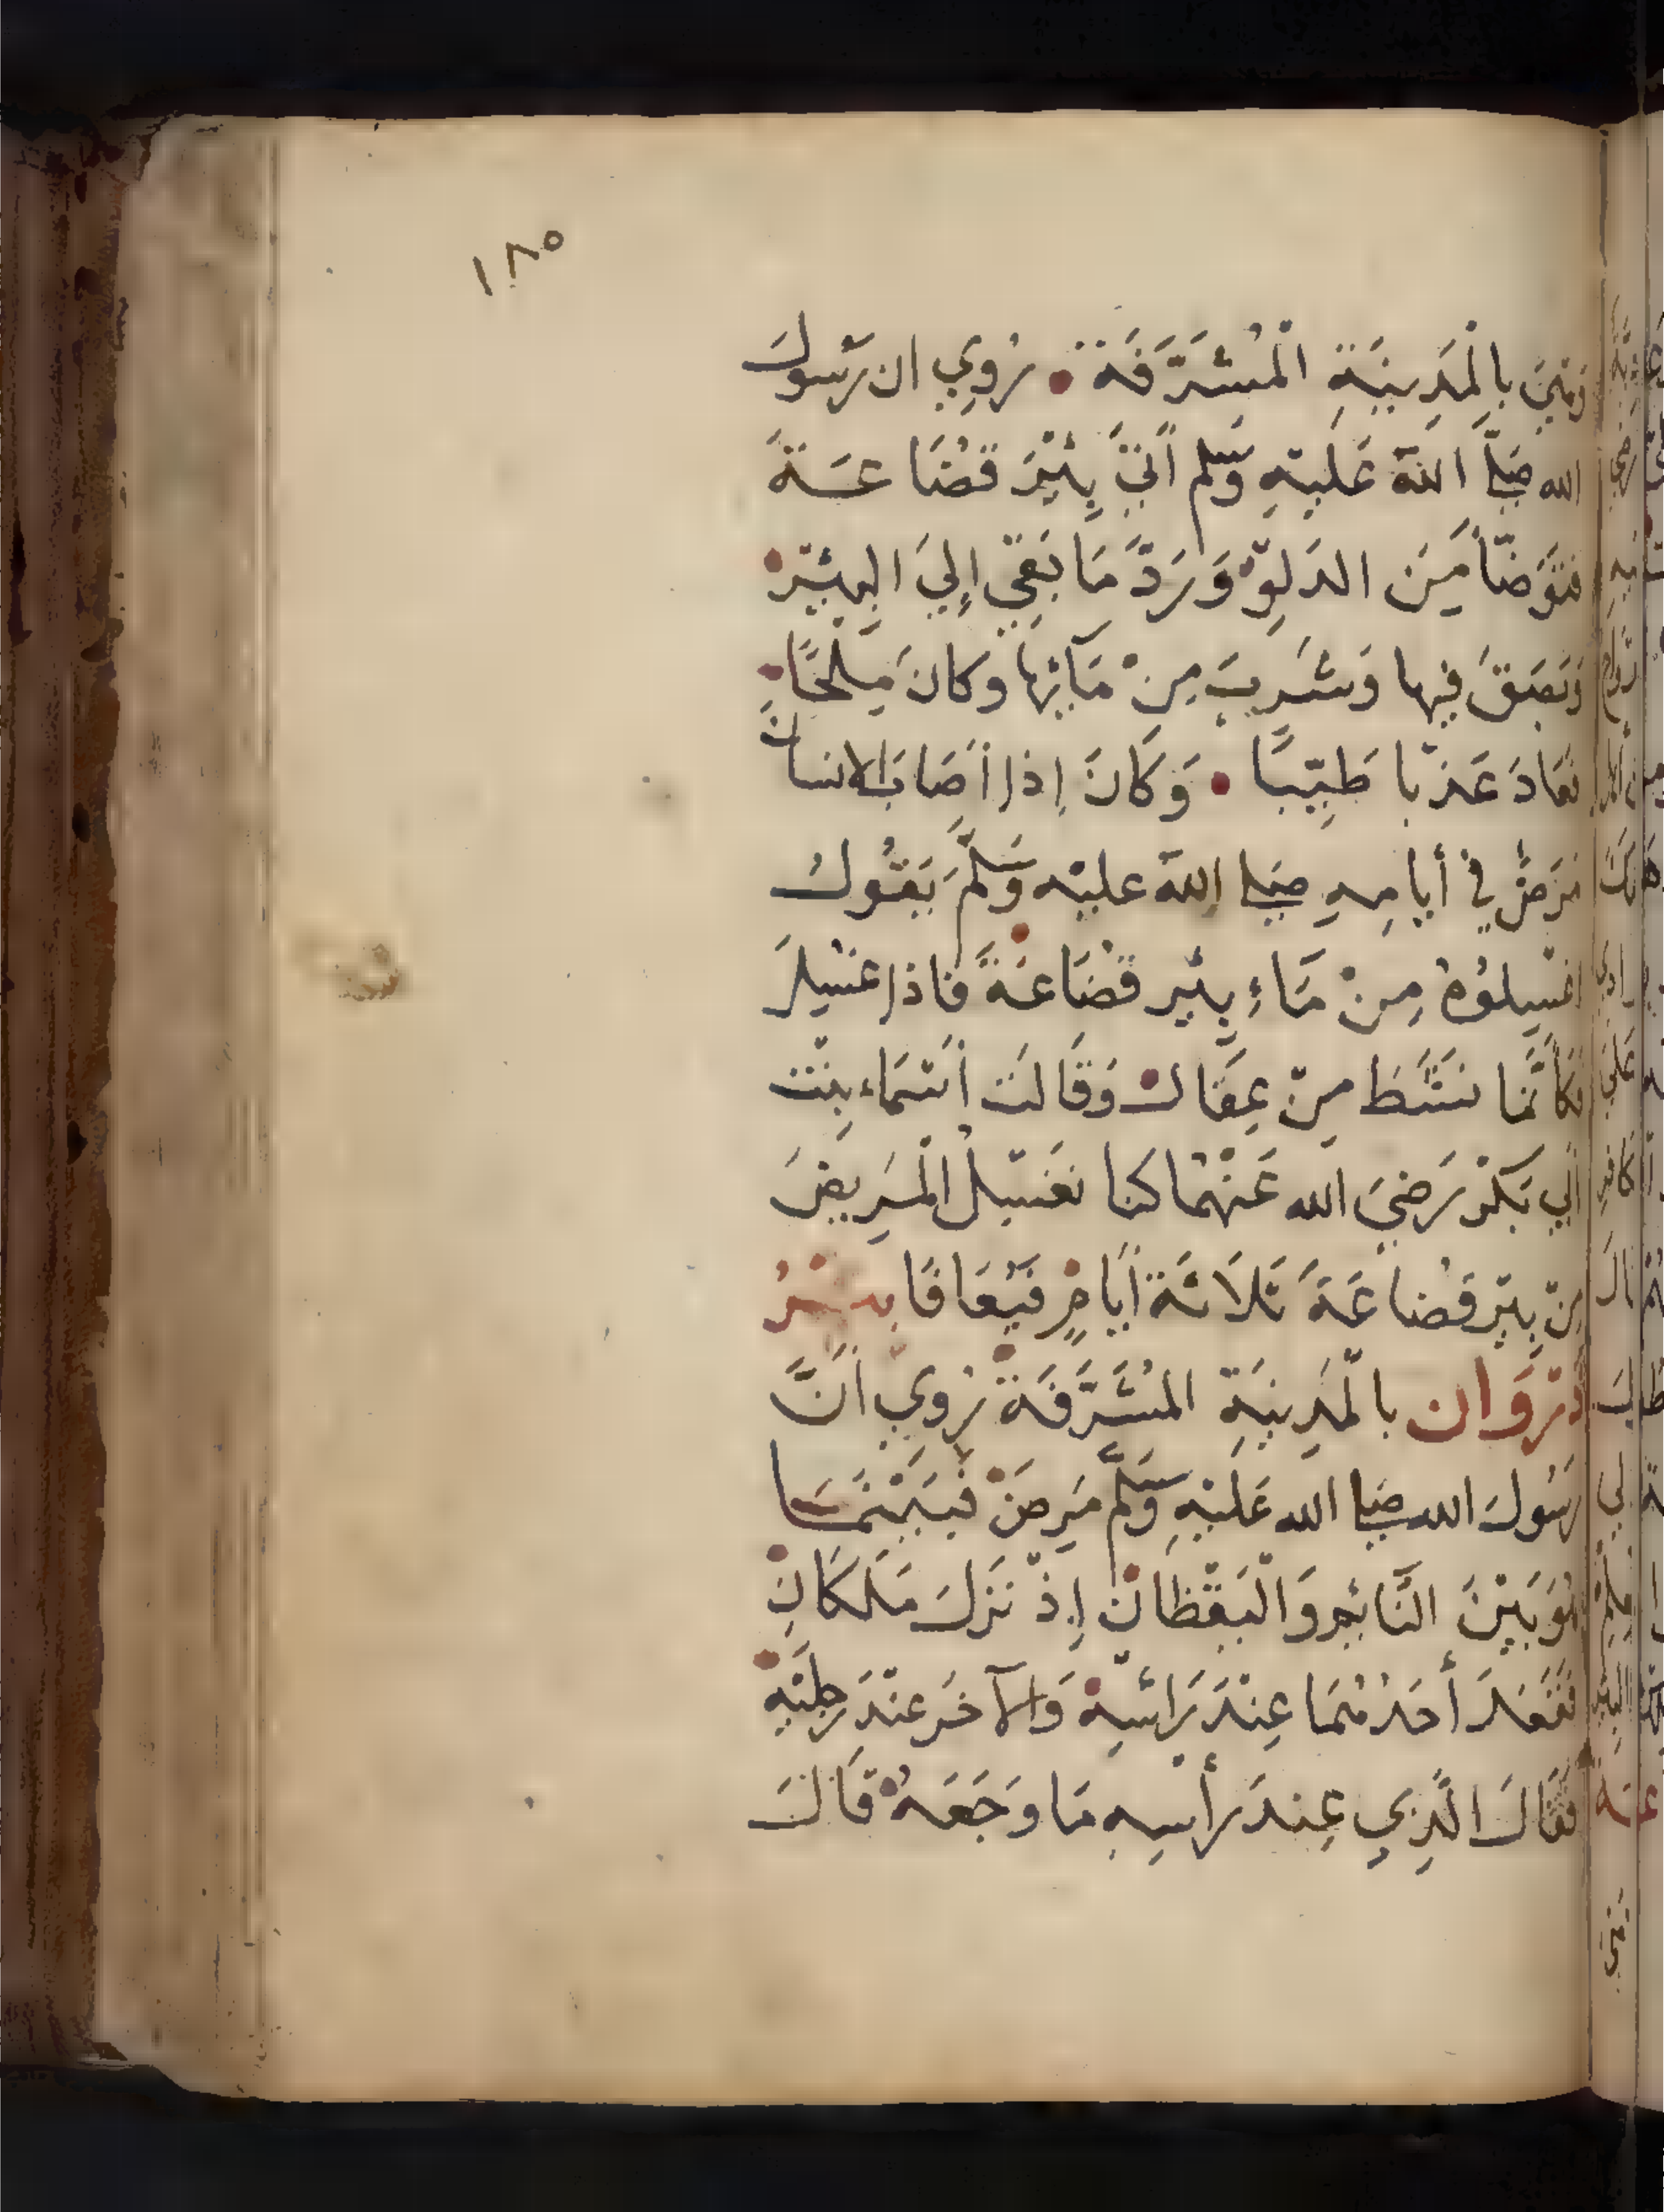 ١٨٥
وَهِيَ بِالْمَدِينَةِ الْمُشَرَّفَة رُوِي ان رَسُولَ
الله صَلَّى اللَّهُ عَلَيْهِ وَسَلَّم أَتَى بِئْرَ قُضَاعَةَ
فَتَوَضَّأَ مِنَ الدَلْوِ وَرَدَّ مَا بَقِيَ إِلَى الْبِئْرِ
وَبَصَقَ فِيها وَشَرِبَ مِنْ مَآئِهَا وَكانَ مِلْحًا
فَعَادَ عَذْبا طَيِّبًا وَكَانَ إذا أَصَابَ الانسانَ
مَرَضٌ في أيامِهِ صَلى اللهُ عليْه وَسَلَّمَ يَقُولُ
اغْسِلُوْهُ مِنْ مَاءِ بِئْرِ قُضَاعَةَ فاذا غسِلَ
فَكَأَنَّمَا نَشَطَ مِنْ عِقَال وَقَالَت أَسْمَاء بِنْت
أَبِي بَكْرٍ رَضِيَ الله عَنْهُمَا كنا نَغْسِلُ الْمَرِيضَ
مِنْ بِيْرِ قُضاعَةَ ثَلَاثَةَ أَيَّامٍ فَيُعَافَا بِئْرُ
ذَرْوَان بالْمَدِينَةِ المُشَرَّفَة رُوِيَ أَنَّ
رَسُولَ الله صَلى الله عَلَيْهِ وَسَلَّم مَرِضَ فَبَيْنَمَا
هُوَ بَيْنَ النَّائِمِ وَالْيَقْظَانِ إِذْ نَزَلَ مَلَكَانِ
فَقَعَدَ أَحَدُهُمَا عِنْدَ رَأْسِهِ وَالآخَر عِنْدَ رِجْلَيْهِ
فَقَالَ الَّذِي عِندَ رَأسِهِ مَا وَجَعَهُ قَالَ